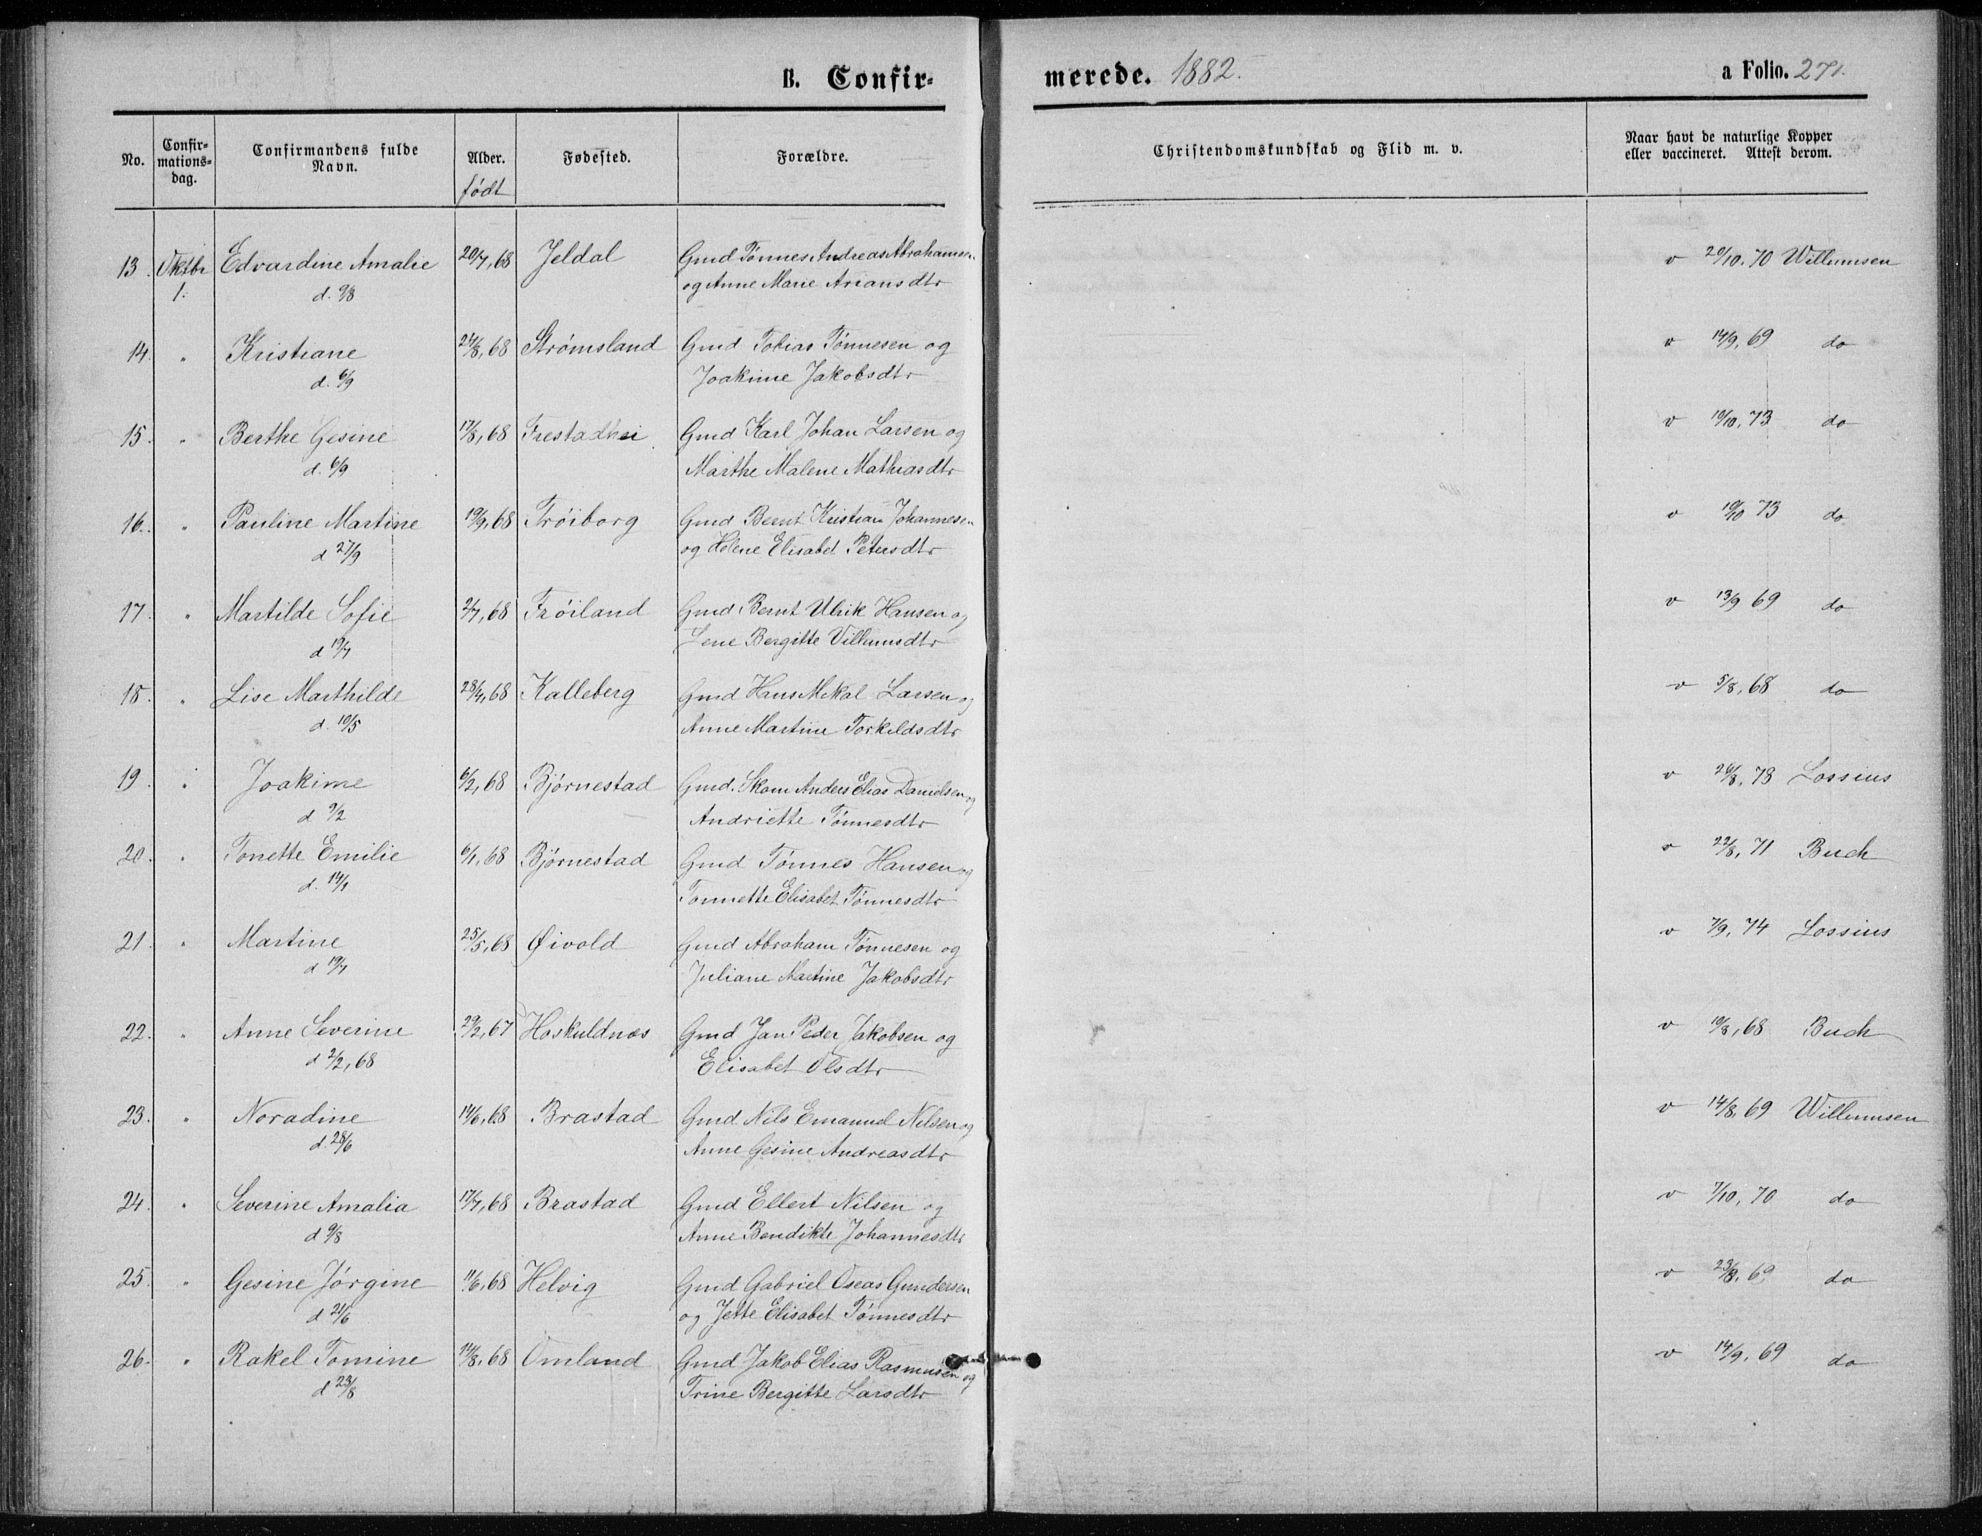 B. Confir-
merede. 1882.
a Folio. 271.
No.
Confir-
mations-
dag.
Confirmandens fulde
Navn.
Alder.
født
Fødested.
Forældre.
Christendomskundskab og Flid m. v.
Naar havt de naturlige Kopper
eller vaccineret. Attest derom.
13. Oktbr Edvardine Amalie 20/7, 68 Jeldal Gmd Tønnes Andreas Abrahamsen v 20/10. 70 Willumsen
1. d. 9/8 og Anne Marie Ariansdtr
14. " Kristiane 24/8, 68 Strømsland Gmd Tobias Tønnesen og v 14/9, 69 do
d. 6/9 Joakime Jakobsdtr
15. " Berthe Gesine 17/8, 68 Frestadhei Gmd Karl Johan Larsen og v 19/10, 73 do
d. 6/9 Marthe Malene Mathiasdtr
16. " Pauline Martine 19/9, 68 Frøiborg Gmd Bernt Kristian Johannesen v 19/10 73 do
d 27/9 og Helene Elisabet Petersdtr
17. " Martilde Sofie 2/7, 68 Frøiland Gmd Bernt Ulrik Hansen og v 13/9 69 do
d 19/7 Lene Bergitte Villumsdtr
18. " Lise Marthilde 28/4, 68 Kalleberg Gmd Hans Mekal Larsen og v 5/8, 68 do
d. 10/5 Anne Martine Torkildsdtr
19 " Joakime 6/2, 68 Bjørnestad Gmd. Skom Anders Elias Danielsen og v 26/8, 78 Lossius
d 9/2 Andriette Tønnesdtr
20. " Tonette Emilie 6/1, 68 Bjørnestad Gmd Tønnes Hansen og v 22/8, 71 Buch
d. 14/1 Tonnette Elisabet Tønnesdtr
21. " Martine 25/5, 68 Øivold Gmd Abraham Tønnesen og v 7/9, 74 Lossius
d 19/7 Juliane Martine Jakobsdtr
22. " Anne Severine 29/2, 67 Høskuldnes Gmd Jan Peder Jakobsen og v 19/8, 68 Buch
d 2/2, 68 Elisabet Olsdtr
23. " Noradine 14/6, 68 Brastad Gmd Nils Emanuel Nilsen og v 14/8, 69 Willumsen
d. 28/6 Anne Gesine Andreasdtr
24. " Severine Amalia 17/7, 68 Brastad Gmd Ellert Nilsen og v 7/10, 70 do
d 9/8 Anne Bendikte Johannesdtr
25. " Gesine Jørgine 11/6, 68 Helvig Gmd Gabriel Oseas Gundersen v 23/8, 69 do
d 21/6 og Jette Elisabet Tønnesdtr
26. " Rakel Tomine 14/8, 68 Omland Gmd Jakob Elias Rasmusen og v 14/9, 69 do
d 23/8 Trine Bergitte Larsdtr